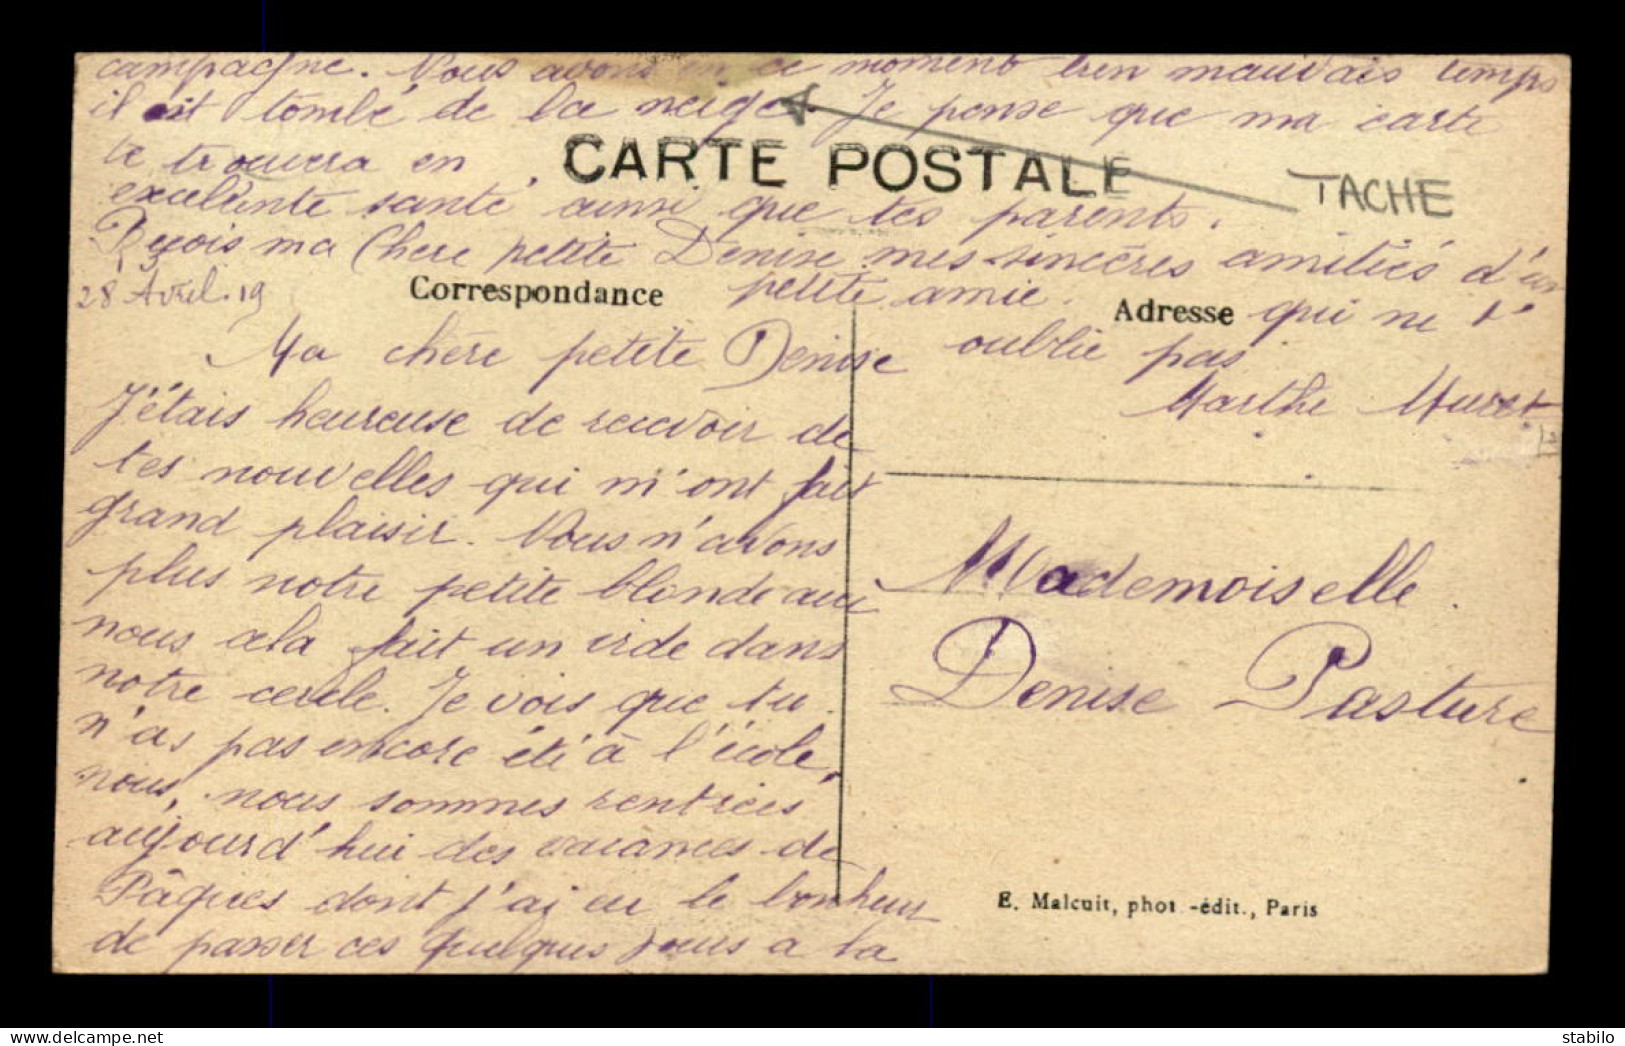 campagne. Nous avons en ce moment bien mauvais temps
il est tombé de la neige. Je pense que ma carte
te trouvera en
CARTE POSTALE
TACHE
excelente santé ainsi que tes parents.
Reçois ma Chère petite Denise mes sincères amitiés d'un
petite amie. qui ne t'
oublie pas
Marthe Muret
28 Avril. 19
Correspondance
Adresse
Ma chère petite Denise
J'étais heureuse de recevoir de
tes nouvelles qui m'ont fait
grand plaisir. Nous n'avons
plus notre petite blonde avec
nous cela fait un vide dans
notre cercle. Je vois que tu
n'as pas encore été à l'école,
nous, nous sommes rentrées
aujourd'hui des vacances de
Pâques dont j'ai eu le bonheur
de passer ces quelques jours a la
Mademoiselle
Denise Pasture
E. Malcuit, phot.-édit., Paris
stabilo